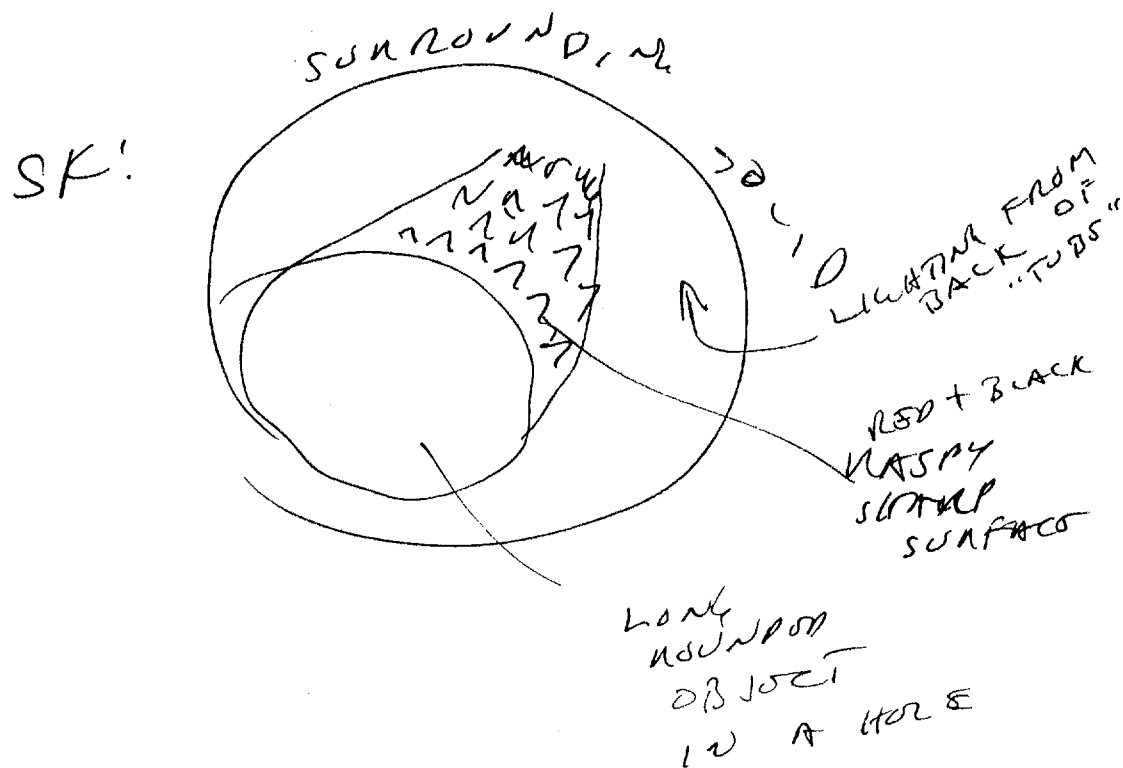 SURROUNDING
SOLID
SK:
LIGHTING FROM
BACK OF
"TUBE"
RED + BLACK
RASPY
SHARP
SURFACE
LONG
ROUNDED
OBJECT
IN A HOLE